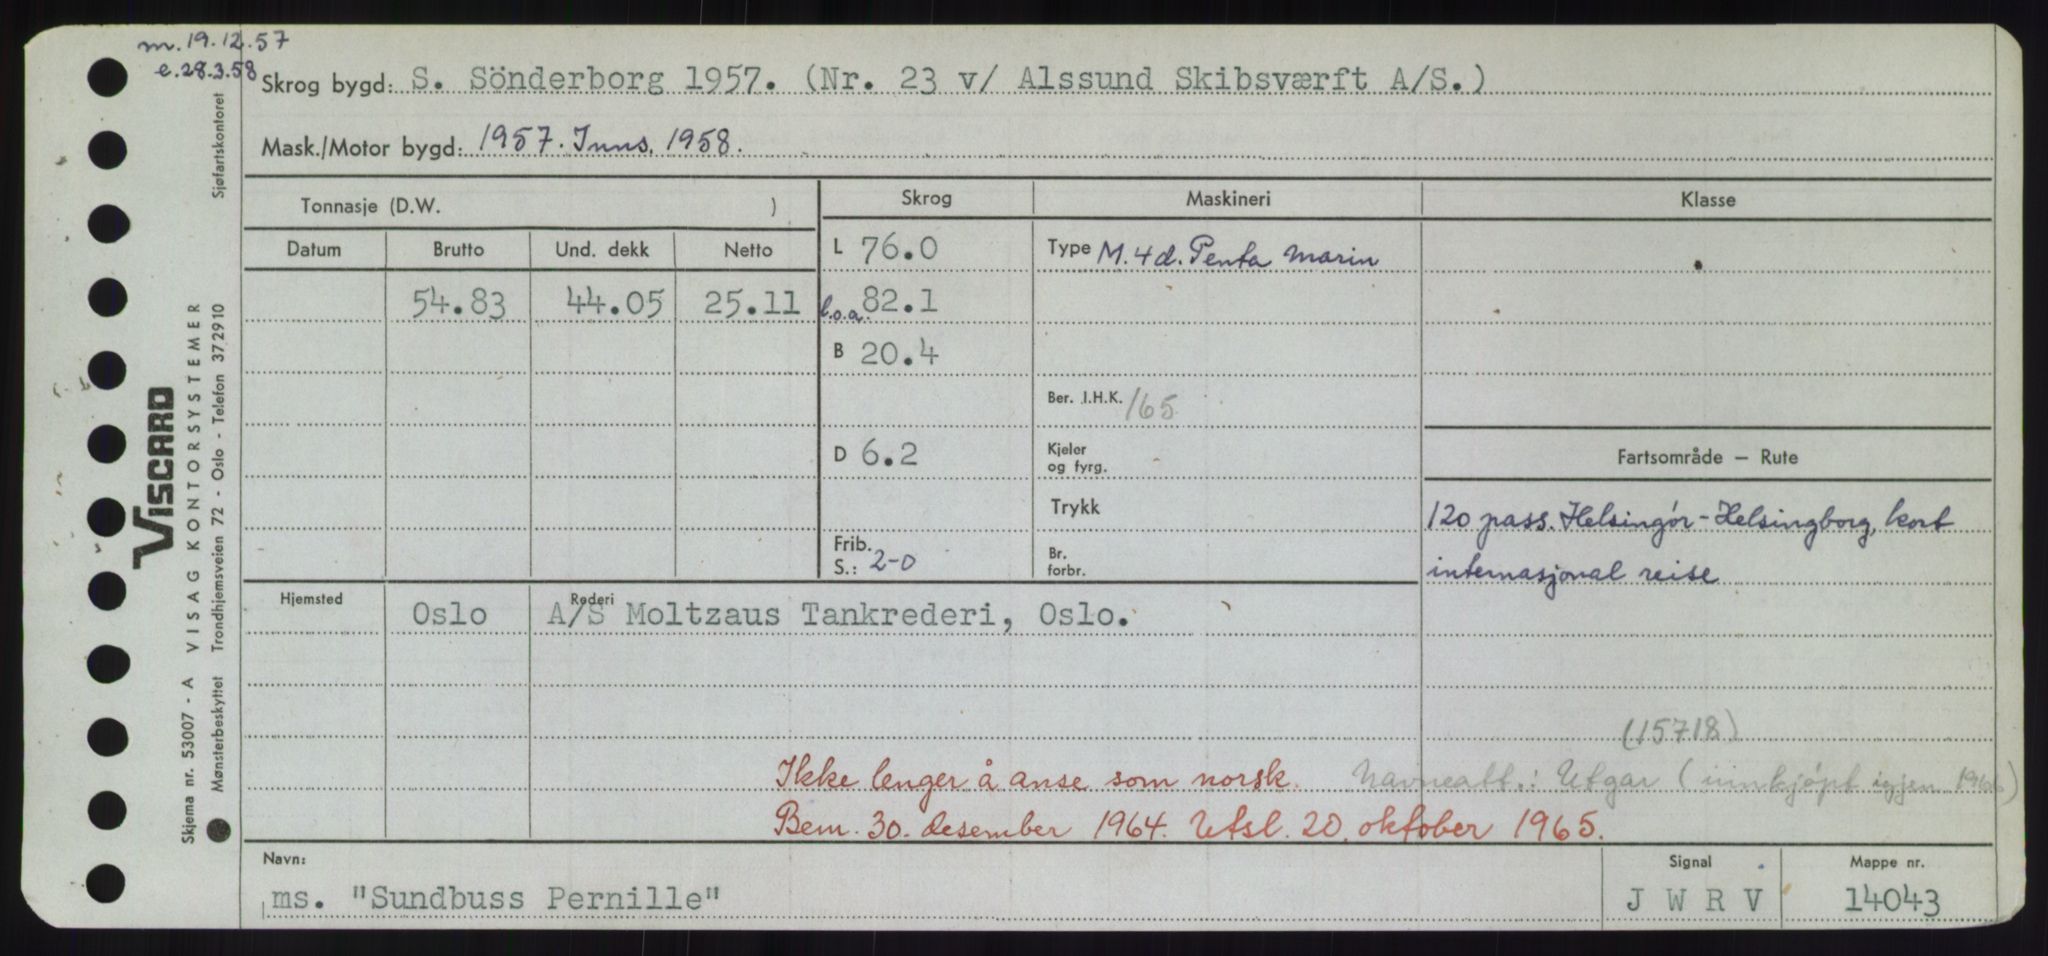 m. 19.12.57
e. 28.3.58
Skrog bygd: S. Sönderborg 1957. (Nr. 23 v/ Alssund Skibsværft A/S.)
Mask./Motor bygd: 1957. Inns. 1958.
Tonnasje (D.W. )
Skrog
Maskineri
Klasse
Datum Brutto Und. dekk Netto
L 76.0
Type M. 4 d. Penta Marin
54.83 44.05 25.11
l.o.a. 82.1
B 20.4
Ber. I.H.K. 165
D 6.2
Kjeler
og fyrg.
Fartsområde – Rute
Trykk
120 pass. Helsingör-Helsingborg, kort
Frib.
S.: 2-0
Br.
forbr.
internasjonal reise
Hjemsted Oslo
Rederi A/S Moltzaus Tankrederi, Oslo.
(15718)
Ikke lenger å anse som norsk. Navneatt.: Utgar (innkjøpt igjen 1966)
Bem. 30. desember 1964. Utsl. 20. oktober 1965.
Navn:
ms. "Sundbuss Pernille"
Signal
J W R V
Mappe nr.
14043
Skjema nr. 53007 - A VISAG KONTORSYSTEMER
Mønsterbeskyttet Trondhjemsveien 72 - Oslo - Telefon 372910 Sjøfartskontoret
VISCARD